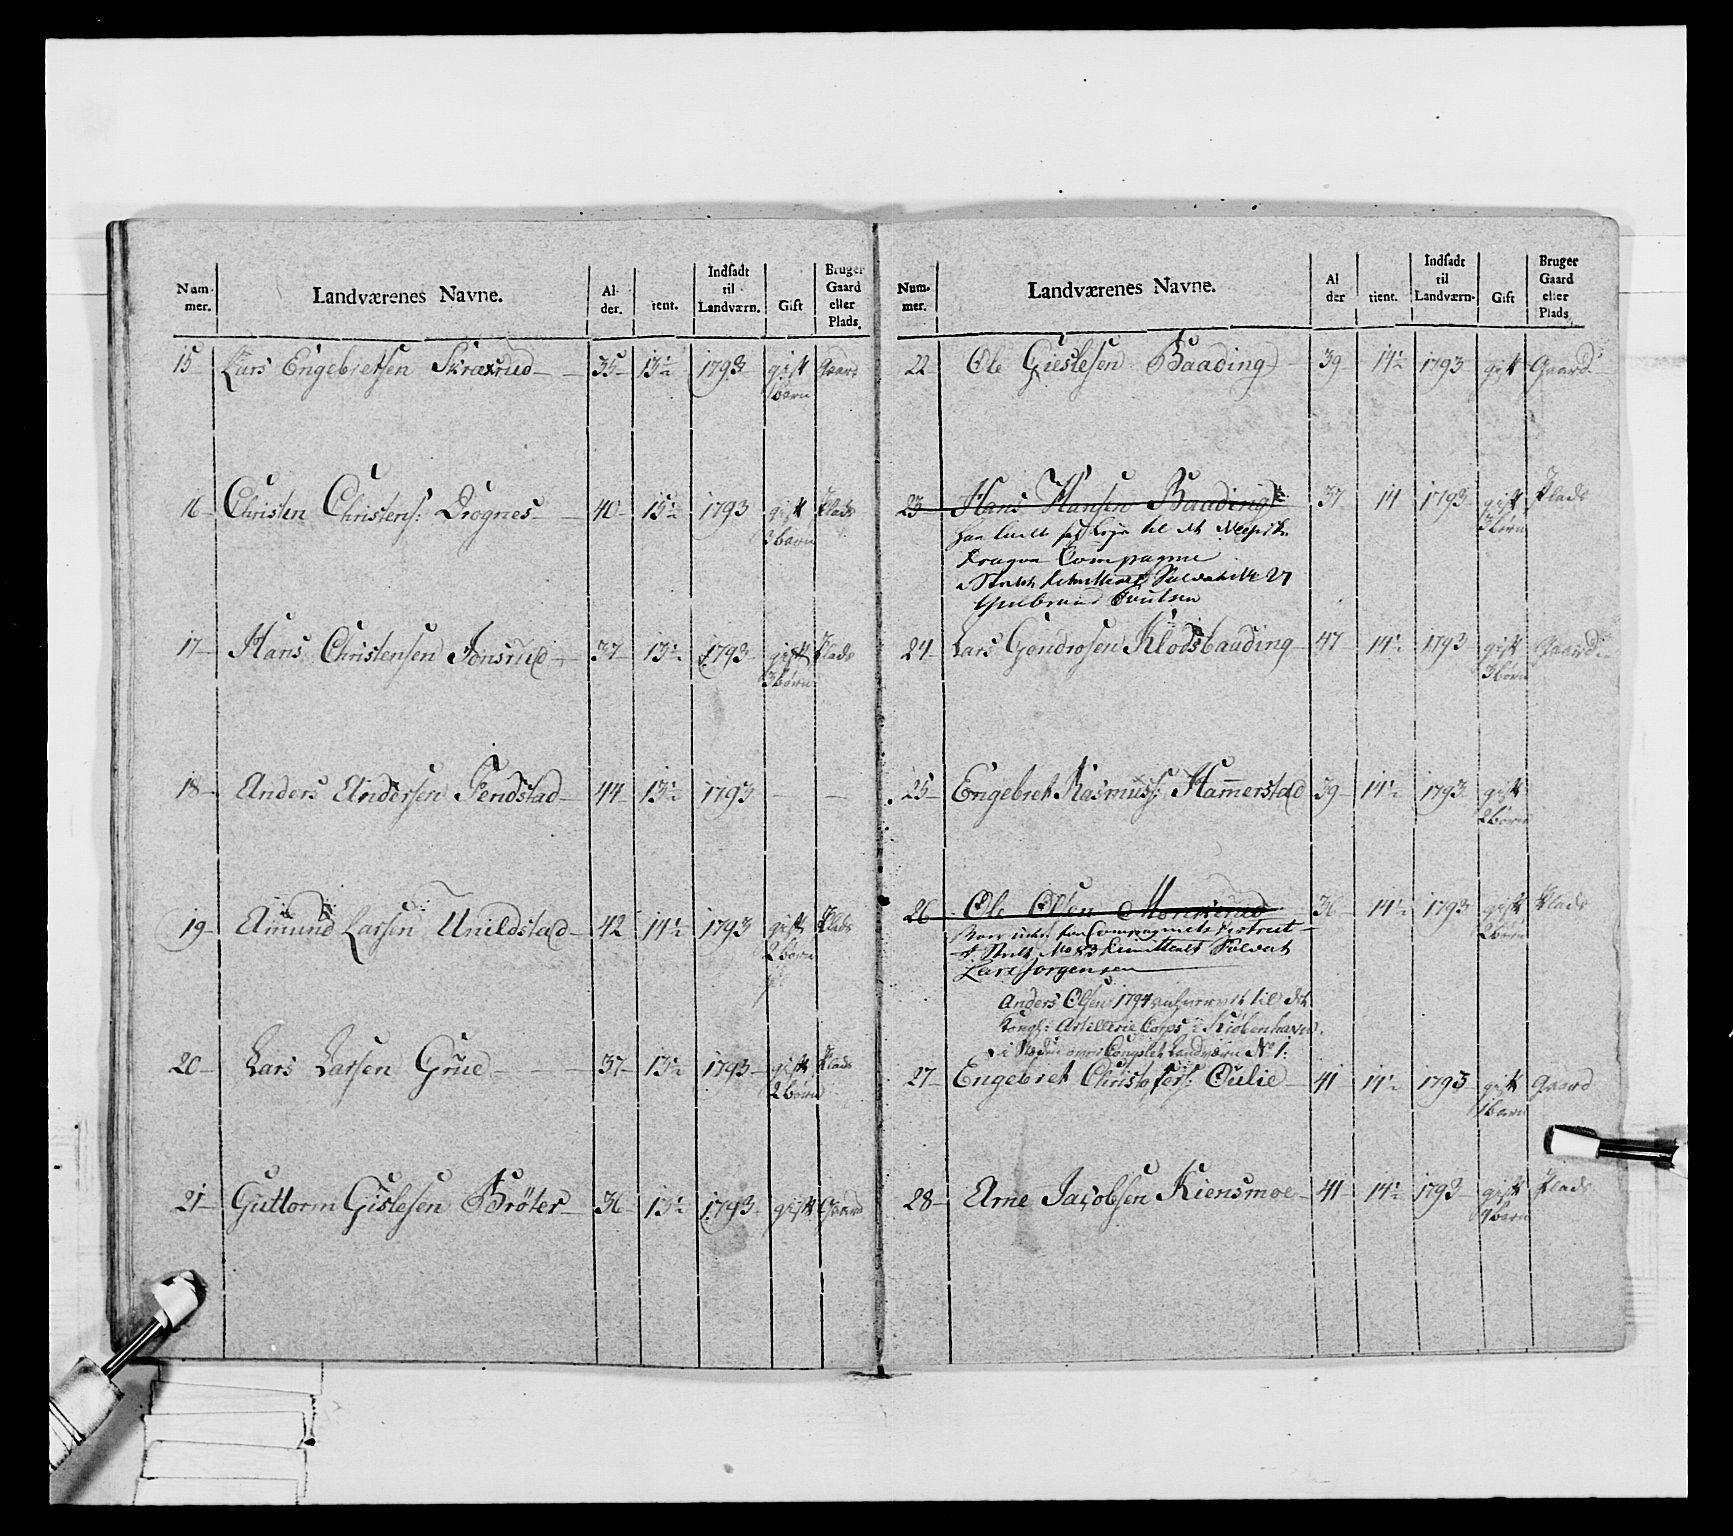 Num-
mer.
Landværenes Navne.
Al-
der.
tient.
Indsadt
til
Landværn.
Gift
Bruger
Gaard
eller
Plads.
15 Lars Engebretsen Skraxrud 35 13½ 1793 gift Gaard
1 barn
16 Christen Christens: Drognes 40 15½ 1793 gift Plads
2 barn
17 Hans Christensen Jonsrud 37 13½ 1793 gift Plads
3 børn
18 Anders Andersen Fendstad 44 13½ 1793 — —
19 Amund Larsen Unildstad 42 14½ 1793 gift Plads
2 børn
20 Lars Larsen Grue 37 13½ 1793 gift Plads
2 børn
21 Guttorm Gislesen Brøter 36 13½ 1793 gift Gaard
Num-
mer.
Landværenes Navne.
Al
der
tient.
Indsadt
til
Landværn.
Gift
Bruger
Gaard
eller
Plads.
22 Ole Gieslesen Baading 39 14½ 1793 gift Gaard
23 Hans Hansen Baading 37 14 1793 gift Plads
3 børn
til
Dragon Compagnie
27
Gulbrand
24 Lars Gondrosen Klodsbauding 47 14½ 1793 gift Gaard
3 børn
25 Engebret Rasmuss: Hammerstad 39 14½ 1793 gift
2 børn
26 Ole Olsen 36 14½ 1793 gift Plads
2 børn
Compagniets District
No 83 Soldat
Lars Jorgensen
Anders Olsen 1794 til det
Kongl: Artillerie Corps i Kiøbenhavn
i Landværn No 1:
27 Engebret Christofers: Oulie 41 14½ 1793 gift Gaard
1 barn
28 Arne Jacobsen Kiensmoe 41 14½ 1793 gift Plads
1 barn